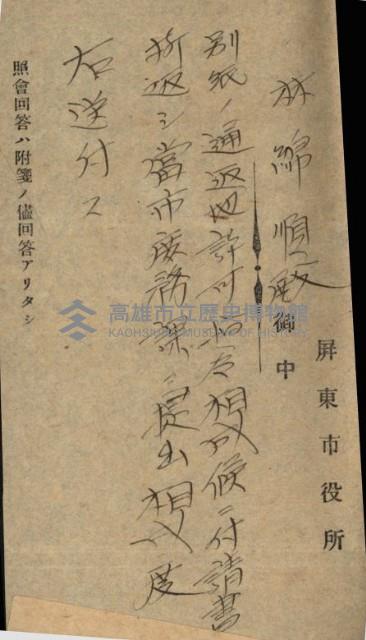 屏東市役所
林綿順殿
御中
別紙ノ通返地許可相成候ニ付請書
折返シ當市庶務課ニ提出相成度
右送付ス
照會回答ハ附箋ノ儘回答アリタシ
高雄市立歷史博物館
KAOHSIUNG MUSEUM OF HISTORY